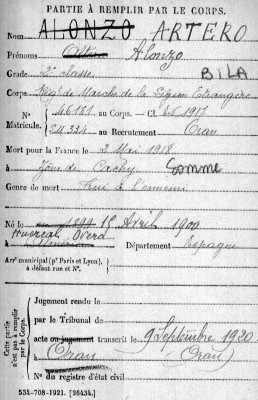 PARTIE À REMPLIR PAR LE CORPS.
Nom ALONZO ARTERO
Prénoms Alonzo
Grade 2e classe BILA
Corps Régt de Marche de la Légion Etrangère
N° 46181 au Corps. — Cl. 66 1917
Matricule. au Recrutement Oran
Mort pour la France le 2 Mai 1918
à Zône de Cachy Somme
Genre de mort Tué à l'ennemi
Né le 1899 15 Avril 1900
Huercal Overa
à Almeria Département Espagne
Arrt municipal (pr Paris et Lyon),
à défaut rue et N°.
Cette partie
n'est pas à remplir
par le Corps.
Jugement rendu le
par le Tribunal de
acte ou jugement transcrit le 9 Septembre 1920
à Oran (Oran)
N° du registre d'état civil
534-708-1921. [26434.]